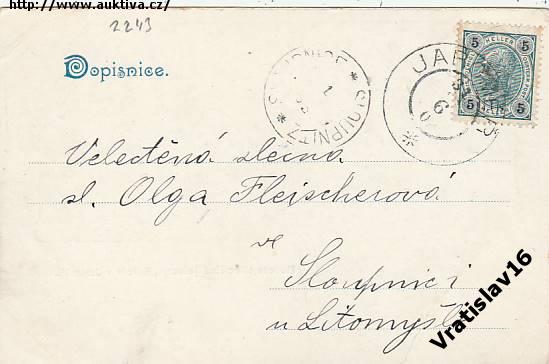 http://www.auktiva.cz/
2243
Dopisnice.
5 HELLER 5
5 5
SLOUPNITZ
JAR
6
Velectěná slečna
sl. Olga Fleischerová
ve
Sloupnici
u Litomyšl
Vratislav16